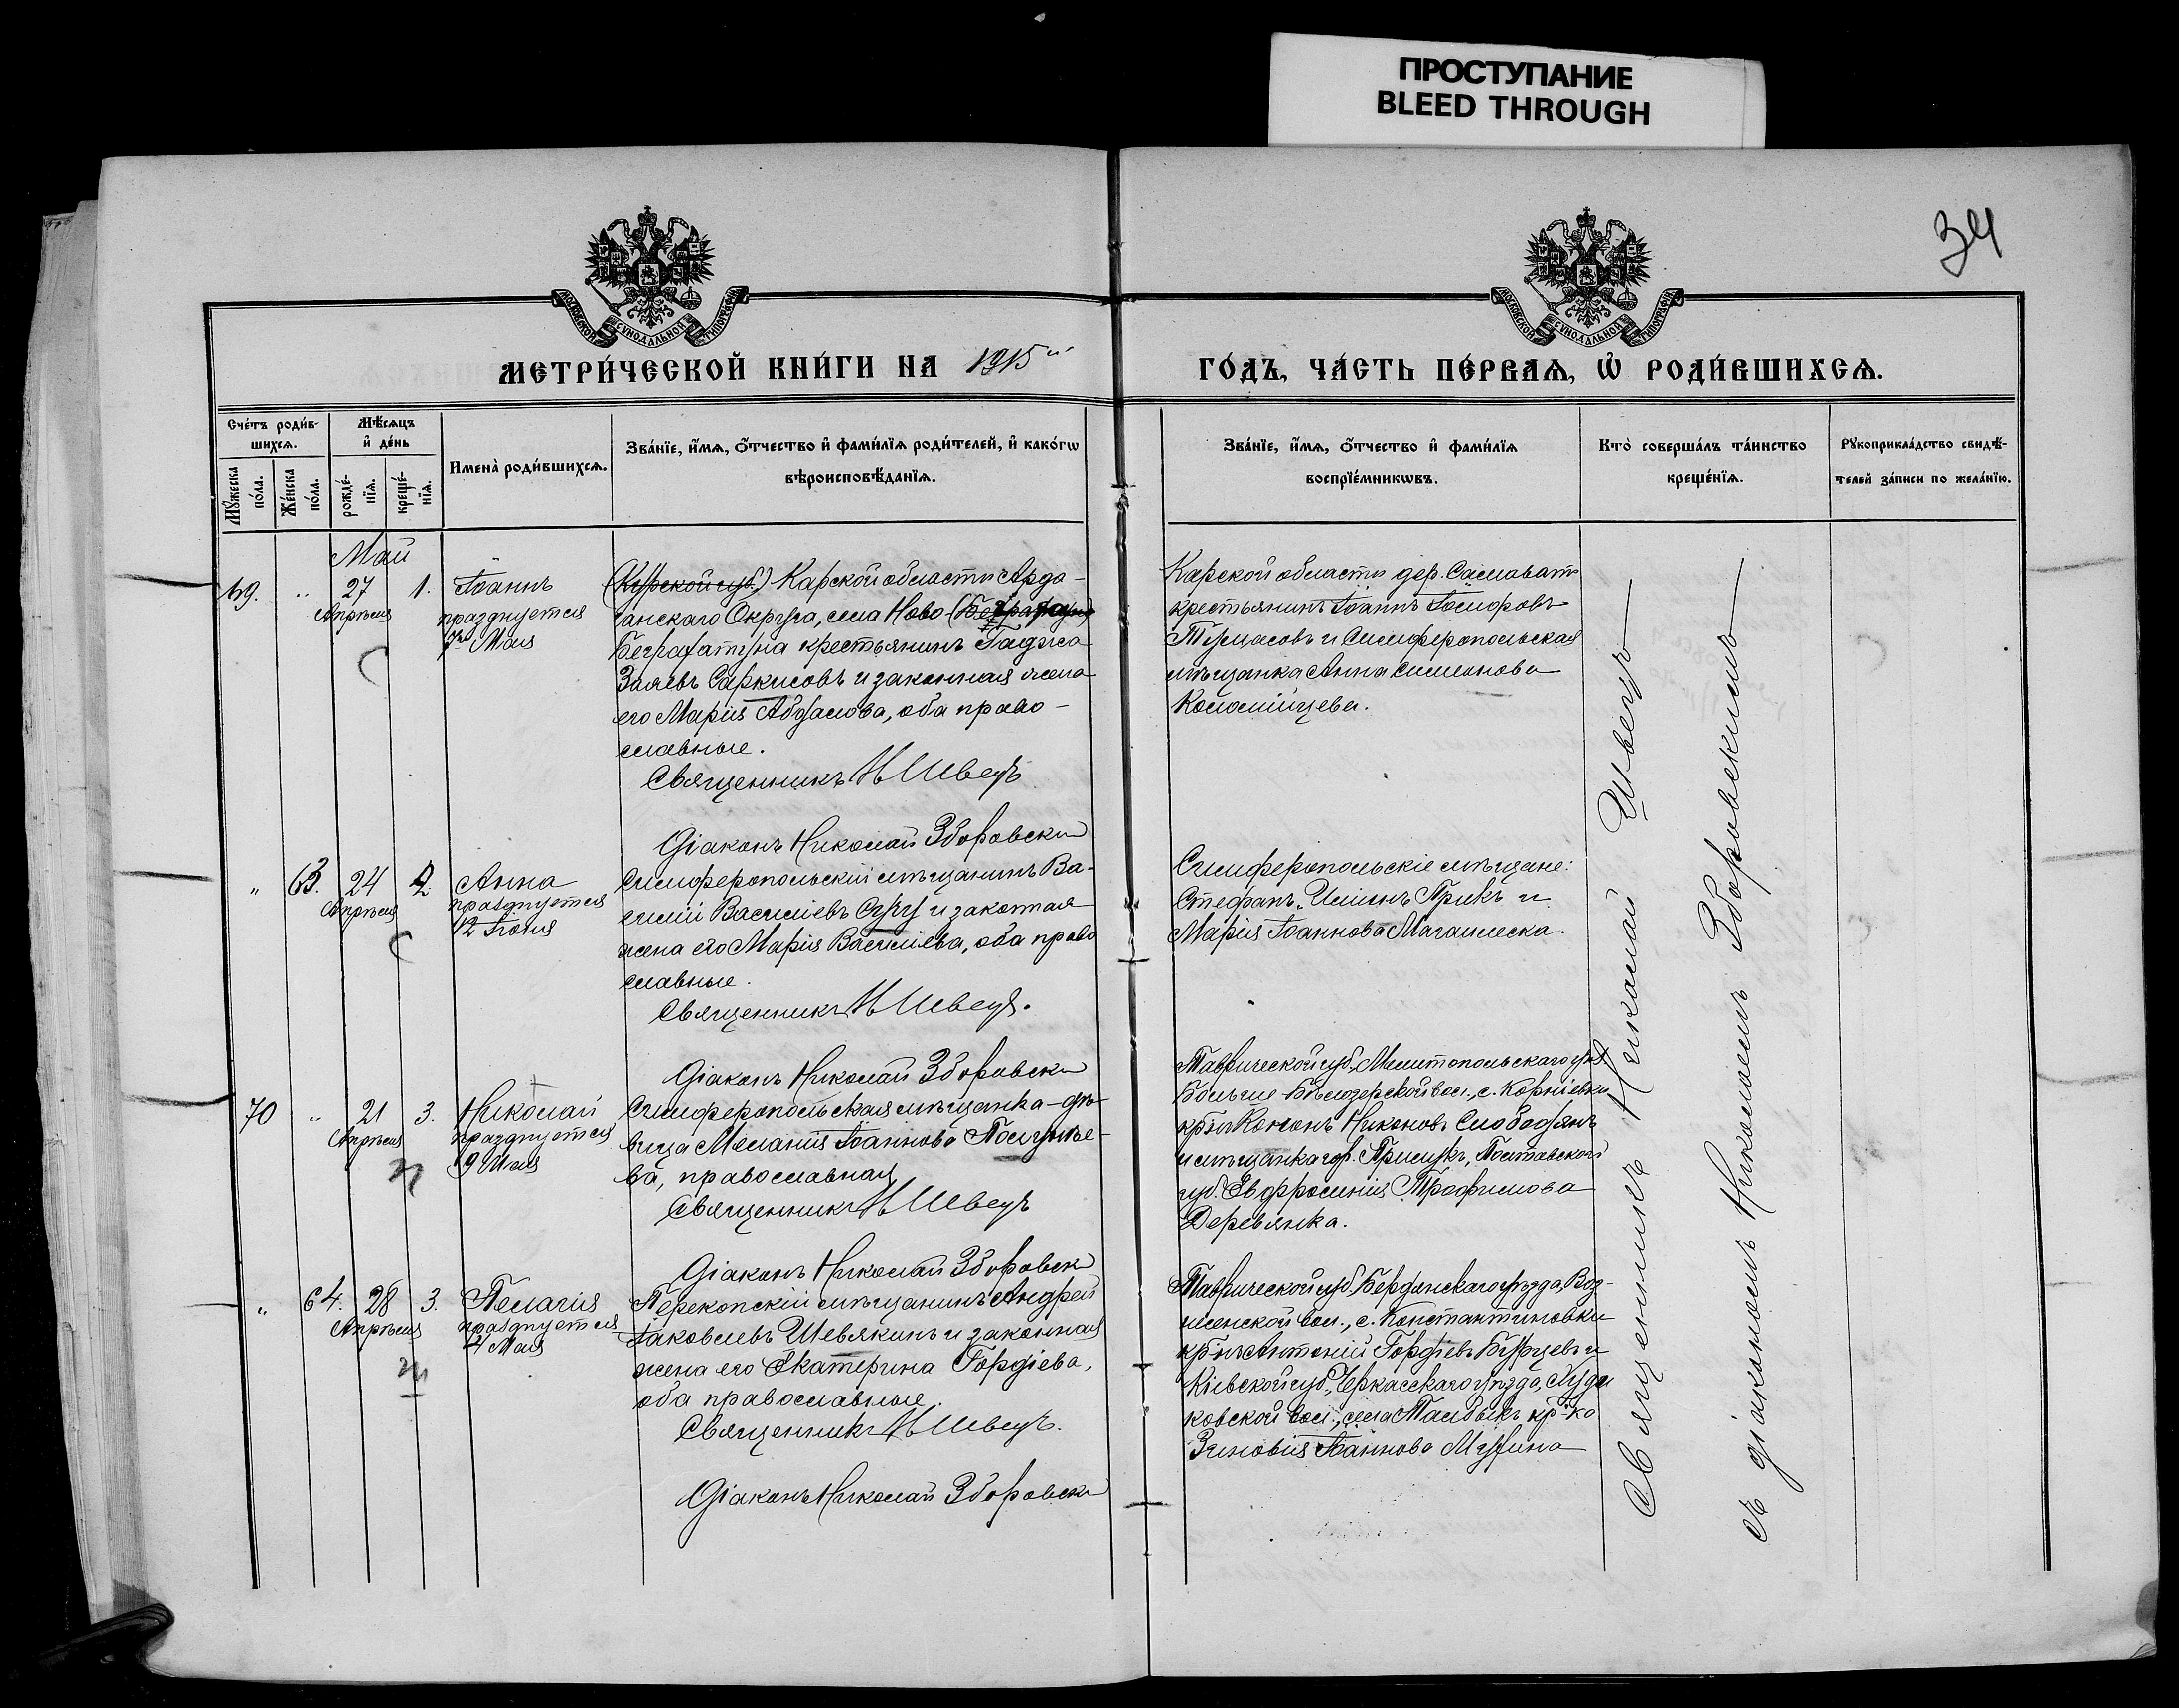 ПРОСТУПАНИЕ
BLEED THROUGH
34
МОСКОВСКОЙ СѴНОДАЛЬНОЙ ТИПОГРАФІИ
МОСКОВСКОЙ СѴНОДАЛЬНОЙ ТИПОГРАФІИ
МЕТРИ́ЧЕСКОЙ КНИ́ГИ НА 1915й
ГО́ДЪ, ЧА́СТЬ ПЕ́РВАѦ, Ѡ҆ РОДИ́ВШИХСѦ.
Сче́тъ роди́в-
шихсѧ.
Мꙋ́жеска по́ла.
Же́нска по́ла.
Мѣ́сѧцъ
и҆ де́нь
рожде́-
нїѧ.
креще́-
нїѧ.
Имена̀ роди́вшихсѧ.
Зва́нїе, и҆́мѧ, ѻ҆́тчество и҆ фами́лїѧ роди́телей, и҆ како́гѡ
вѣроисповѣ́данїѧ.
Зва́нїе, и҆́мѧ, ѻ҆́тчество и҆ фами́лїѧ
воспрїе́мникѡвъ.
Кто̀ соверша́лъ та́инство
креще́нїѧ.
Рꙋкоприкла́дство свидѣ́-
телей за́писи по жела́нїю.
Май
69. " 27 1. Іоаннъ
Апрѣля
празднуется
7го Мая
(Курской губ.) Карской области Арда-
ганскаго Округа, села Ново
Беграхатуна крестьянинъ
Саркисовъ и законная жена
его Марія Абрамова, оба право-
славные.
Священникъ Н Швецъ
Діаконъ Николай Зборовски
Карской области дер.
крестьянинъ Іоаннъ Іосифовъ
и Симферопольская
мѣщанка Анна Симеонова
Коломійцева.
" 63. 24 2. Анна
Апрѣля
празднуется
12 Іюня
Симферопольскій мѣщанинъ Ва-
силій Васильевъ и законная
жена его Марія Васильева, оба право
славные.
Священникъ Н Швецъ.
Діаконъ Николай Зборовски
Симферопольскіе мѣщане:
Стефанъ Ильинъ и
Марія Іоаннова
70 " 21 3. Николай
Апрѣля
празднуется
9 Мая
Симферопольская мѣщанка-дѣ-
вица Меланія Іоаннова
ва, православная
Священникъ Н Швецъ
Діаконъ Николай Зборовски
Таврической губ., Мелитопольскаго уѣз.
Больше-Бѣлозерской вол., с. Корніевки
кр-нъ Кононъ Никоновъ Слободянъ
и мѣщанка гор. Прилукъ, Полтавской
губ. Евфросинія Трофимова
Деревянка.
" 64. 28 3. Пелагія
Апрѣля
празднуется
4 Мая
Перекопскій мѣщанинъ Андрей
Іаковлевъ Шевякинъ и законная
жена его Екатерина Гордіева,
оба православные.
Священникъ Н Швецъ.
Діаконъ Николай Зборовски
Таврической губ., Бердянскаго уѣзда, Воз-
несенской вол., с. Константиновки
кр-нъ Антоній Гордіевъ Бурцевъ и
Кіевской губ., Черкасскаго уѣзда,
ковской вол., села кр-ка
Зиновія Іоаннова Мурина
Священникъ Николай Швецъ
съ діакономъ Николаемъ Зборовскимъ